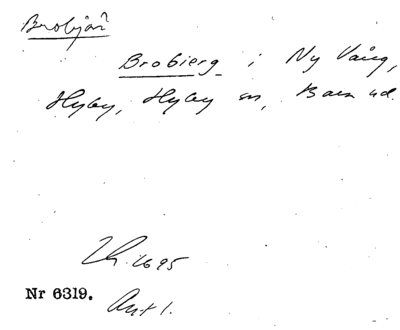 Brobjär
Brobierg i Ny Vång,
Hyby, Hyby sn, Bara hd.
1695
Nr 6319. Ant 1.